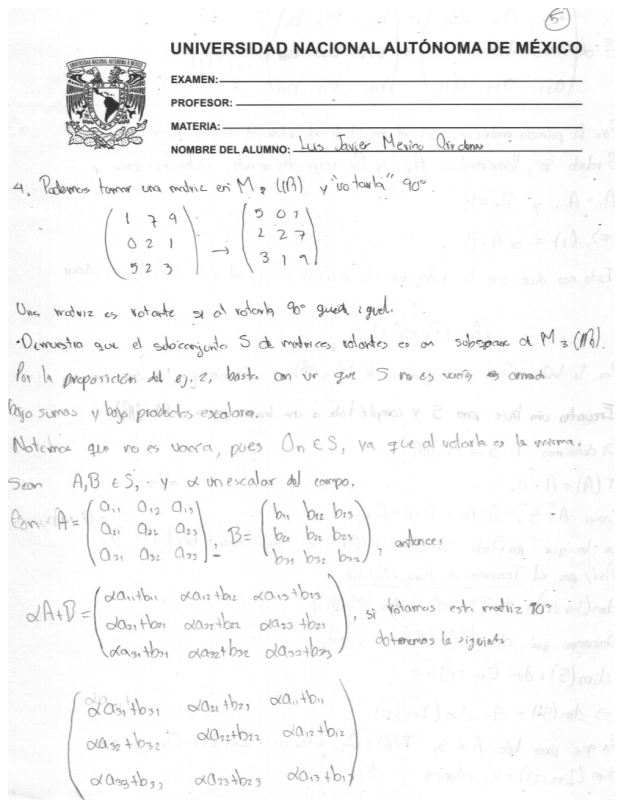 5
UNIVERSIDAD NACIONAL AUTÓNOMA DE MÉXICO
EXAMEN:
PROFESOR:
MATERIA:
NOMBRE DEL ALUMNO: Luis Javier Merino Cardenas
4. Podemos tomar una matriz en M₃ (ℝ) y "rotarla" 90°.
( 1 7 9 ) ( 5 0 1 )
( 0 2 1 ) → ( 2 2 7 )
( 5 2 3 ) ( 3 1 9 )
Una matriz es rotante si al rotarla 90° queda igual.
·Demuestra que el subconjunto S de matrices rotantes es un subespacio de M₃ (ℝ).
Por la proposición del ej. 2, basta con ver que S no es vacío es cerrado
bajo sumas y bajo productos escalares.
Notemos que no es vacía, pues On ∈ S, ya que al rotarla es la misma.
Sean A,B ∈ S, y α un escalar del campo.
Con A = ( a₁₁ a₁₂ a₁₃ ) , B = ( b₁₁ b₁₂ b₁₃ ) , entonces
( a₂₁ a₂₂ a₂₃ ) ( b₂₁ b₂₂ b₂₃ )
( a₃₁ a₃₂ a₃₃ ) ( b₃₁ b₃₂ b₃₃ )
αA+B = ( αa₁₁+b₁₁ αa₁₂+b₁₂ αa₁₃+b₁₃ ) , si rotamos esta matriz 90°
( αa₂₁+b₂₁ αa₂₂+b₂₂ αa₂₃+b₂₃ ) obtenemos lo siguiente
( αa₃₁+b₃₁ αa₃₂+b₃₂ αa₃₃+b₃₃ )
( αa₃₁+b₃₁ αa₂₁+b₂₁ αa₁₁+b₁₁ )
( αa₃₂+b₃₂ αa₂₂+b₂₂ αa₁₂+b₁₂ )
( αa₃₃+b₃₃ αa₂₃+b₂₃ αa₁₃+b₁₃ )